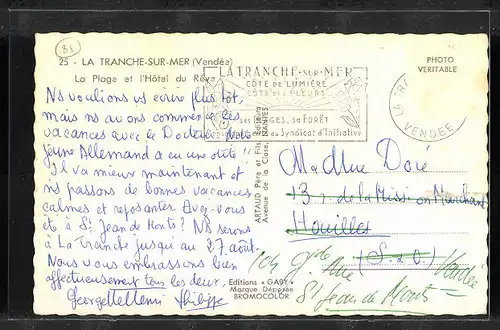 81
25 - LA TRANCHE-SUR-MER (Vendée)
La Plage et l'Hôtel du Rêve
PHOTO
VERITABLE
LA TRANCHE-SUR-MER
CÔTE DE LUMIÈRE
CÔTE des FLEURS
ses PLAGES, sa FORÊT
Syndicat d'Initiative
LA
VENDEE
Ns voulions vs écrire plus tôt,
mais ns avons commencé les
vacances avec le Docteur
jeune Allemand a eu une otite
Il va mieux maintenant et
ns passons de bonnes vacances
calmes et reposantes. Avez-vous
été à St Jean de Monts? NS serons
à La Tranche jusqu'au 27 août.
Nous vous embrassons bien
affectueusement tous les deux,
Georgette Henri Philippe
ARTAUD Père et Fils, Editeurs
Avenue de la Close, NANTES
Editions "GABY"
Marque Déposée
BROMOCOLOR
M and Mme Doré
13 de la Mission Marchand
Houilles
(S. & O.)
104 gde Rue
St Jean de Monts
Vendée